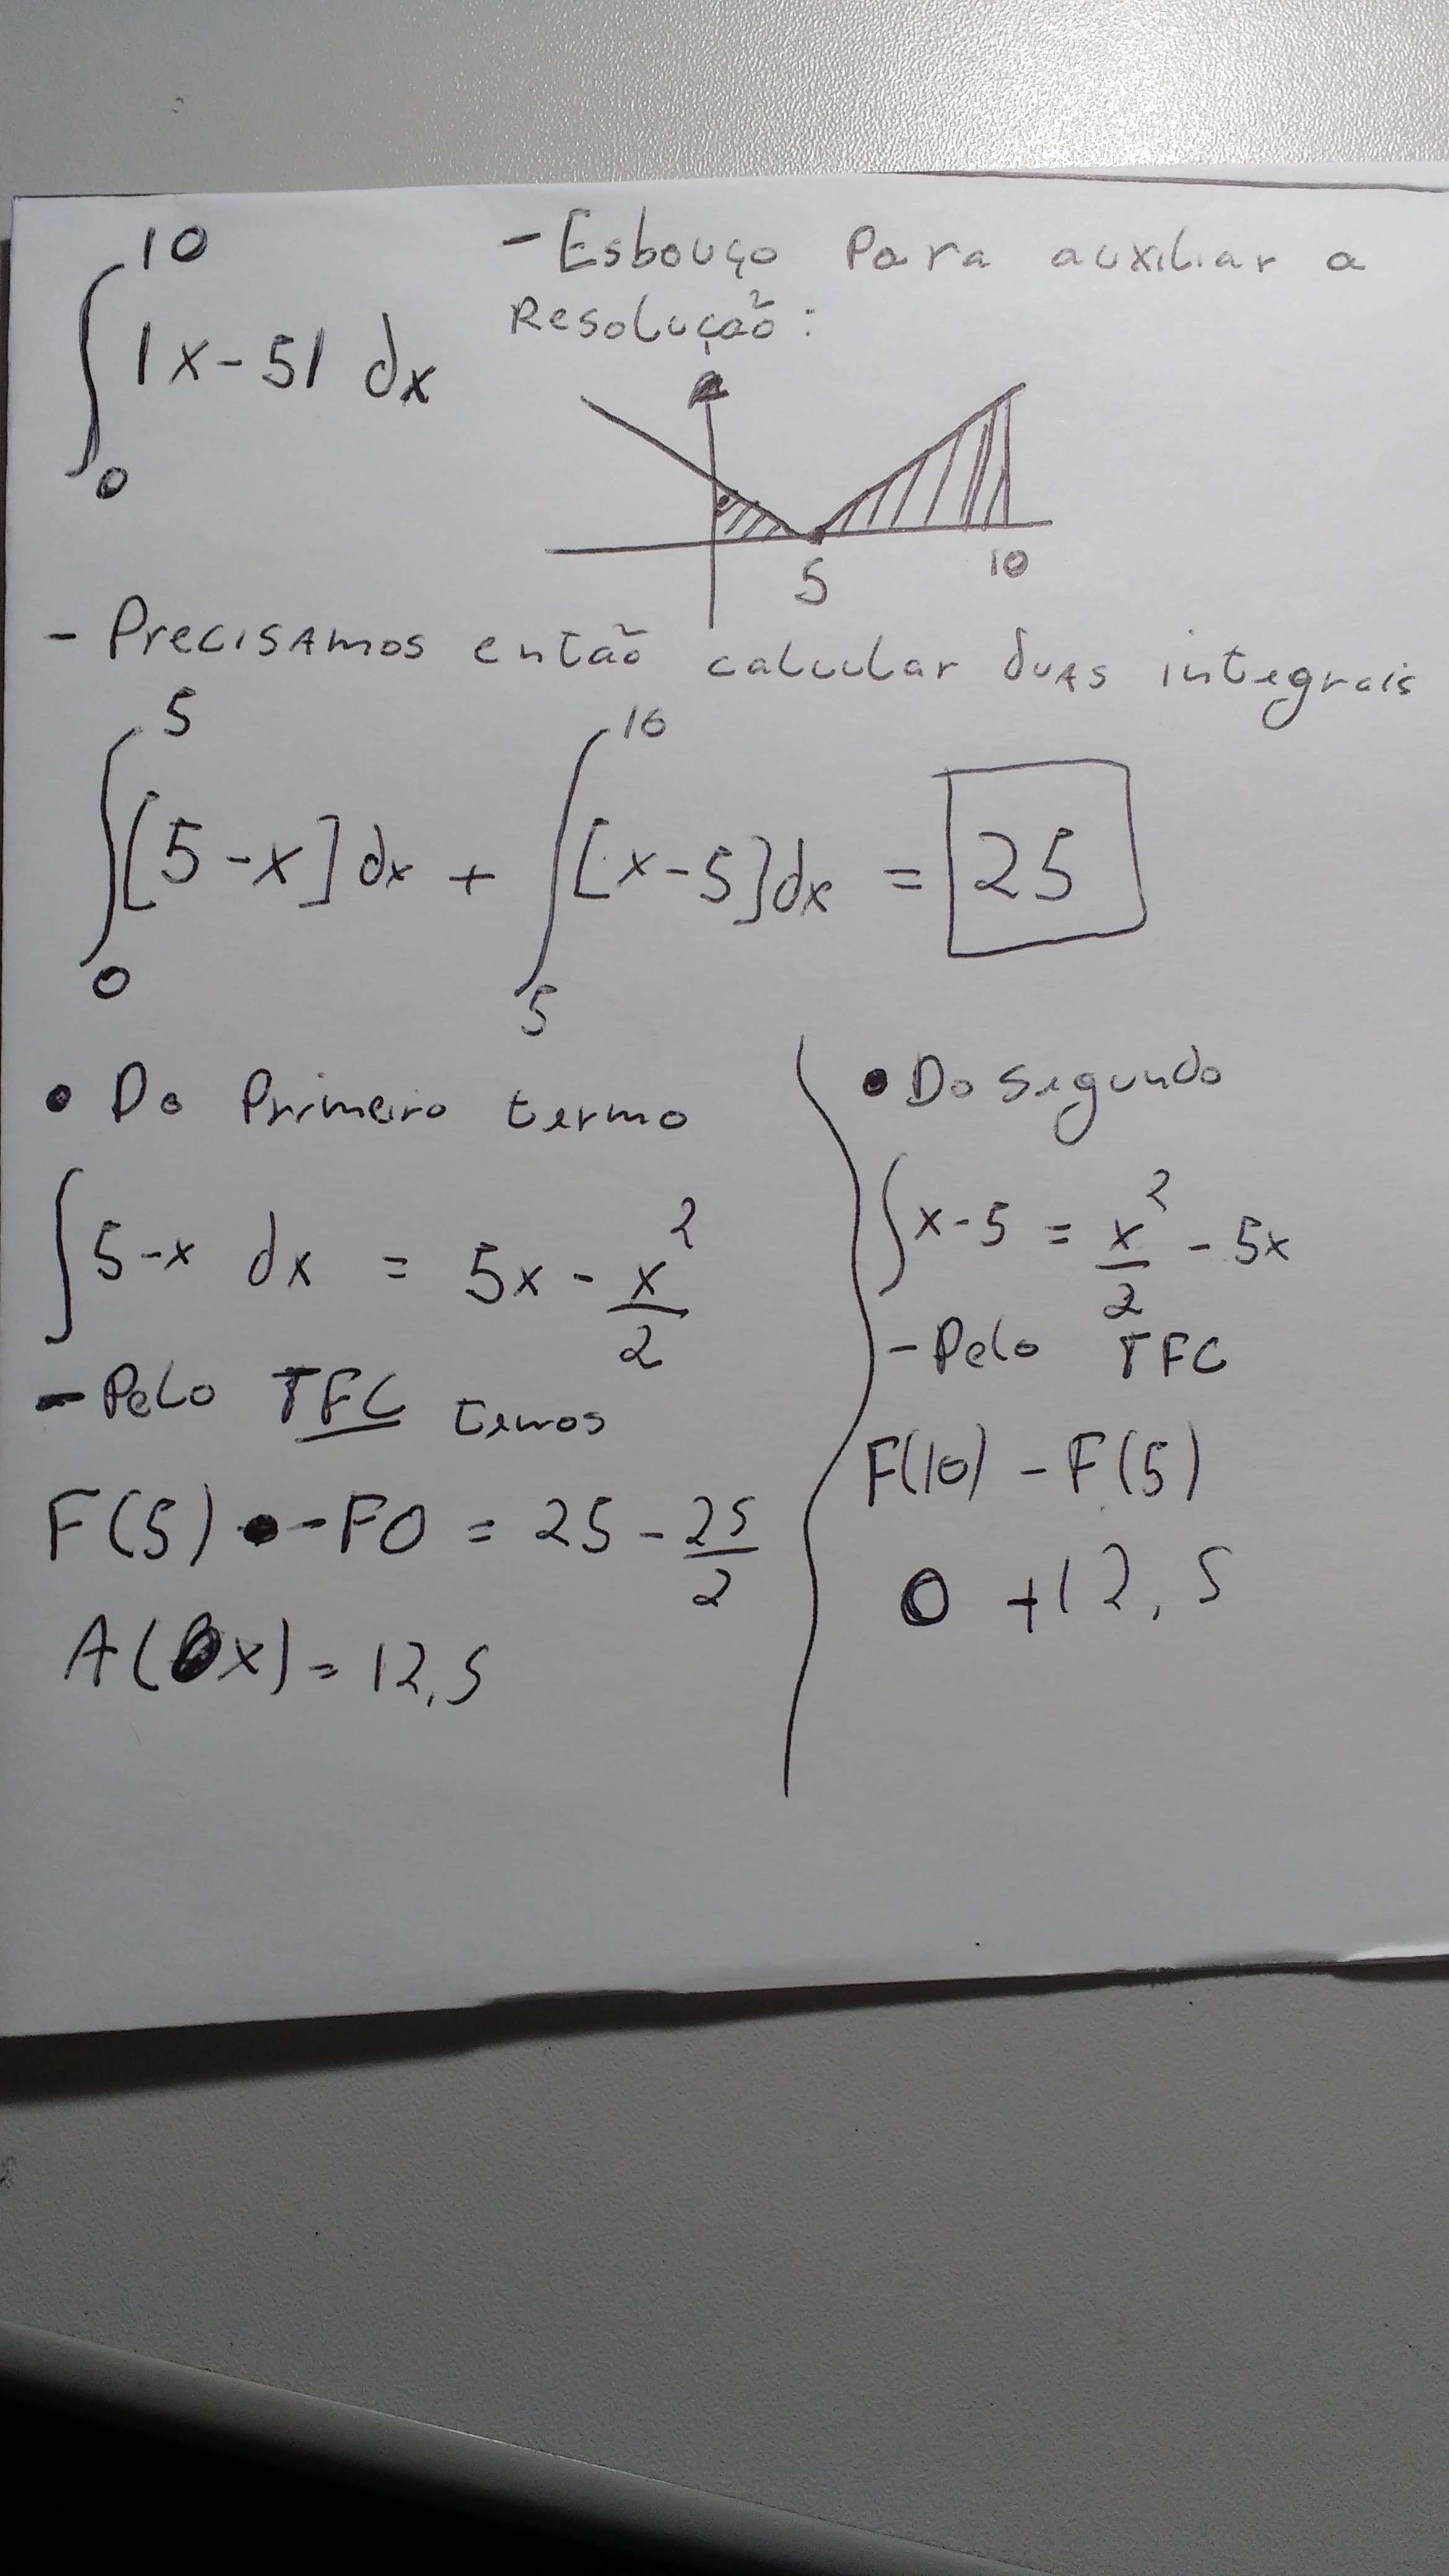 ∫₀¹⁰ |x-5| dx
- Esbouço Para auxiliar a
Resolução:
5
10
- Precisamos então calcular duas integrais
∫₀⁵ [5-x] dx + ∫₅¹⁰ [x-5] dx = 25
• Do Primeiro termo
∫ 5-x dx = 5x - x²/2
- Pelo TFC temos
F(5) - F0 = 25 - 25/2
A(x) = 12,5
• Do segundo
∫ x-5 = x²/2 - 5x
- Pelo TFC
F(10) - F(5)
0 + 12,5